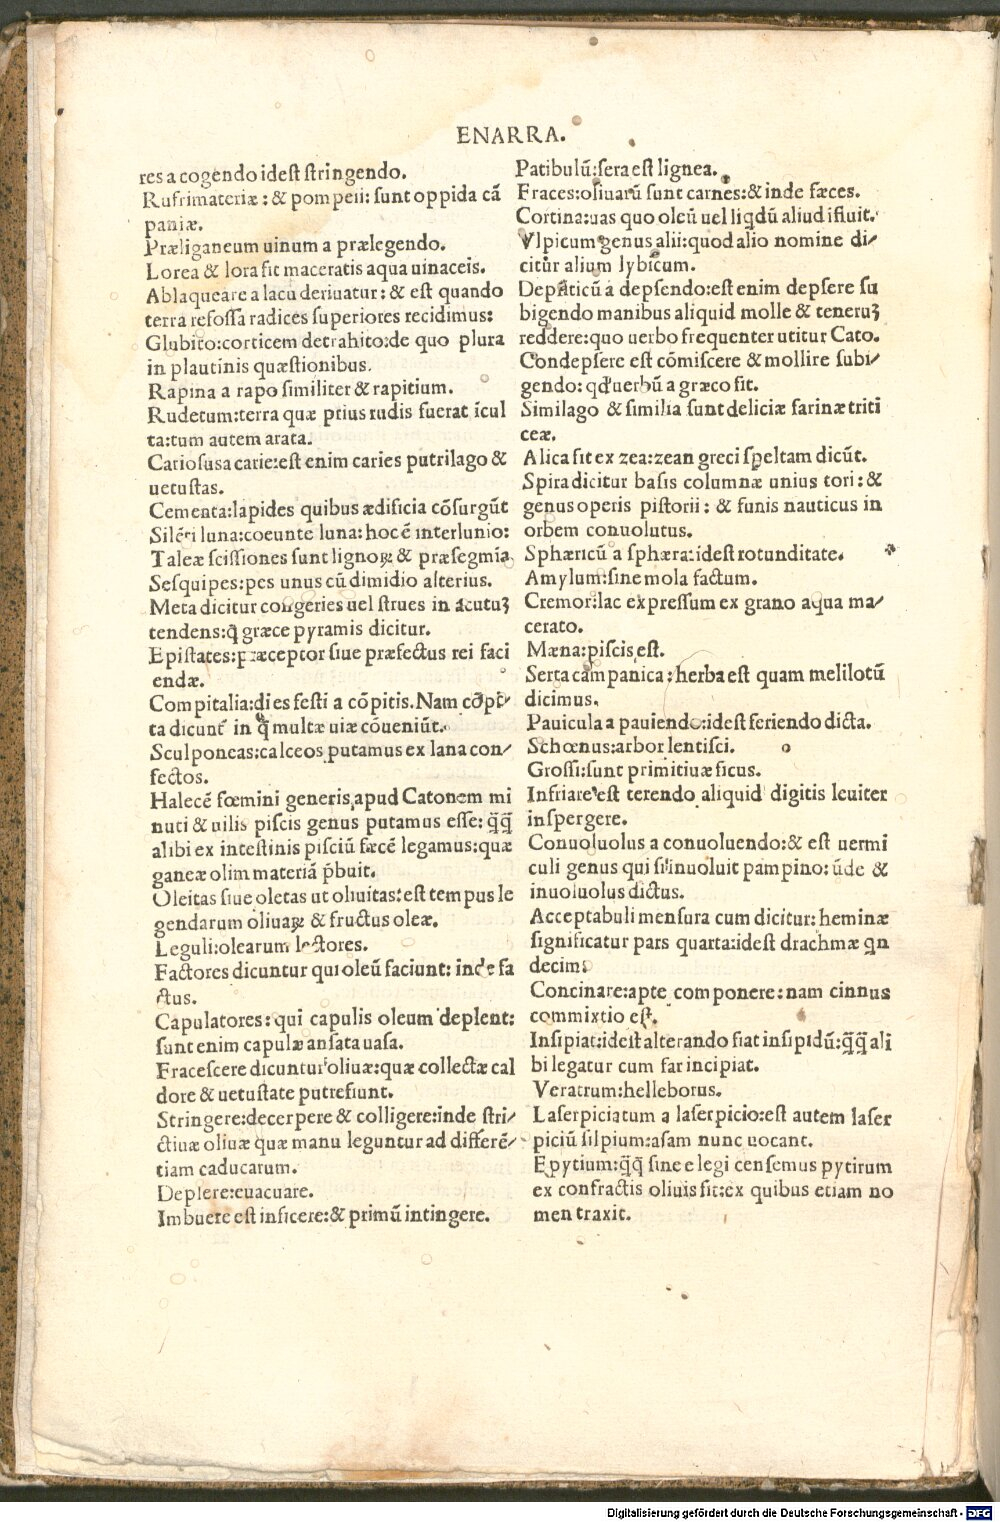 ENARRA.
res a cogendo idest stringendo.
Rufrimateriæ: & pompeii: sunt oppida cā
paniæ.
Præliganeum uinum a prælegendo.
Lorea & lora fit maceratis aqua uinaceis.
Ablaqueare a lacu deriuatur: & est quando
terra refossa radices superiores recidimus:
Glubito: corticem detrahito: de quo plura
in plautinis quæstionibus.
Rapina a rapo similiter & rapitium.
Rudetum: terra quæ prius rudis fuerat īcul
ta: tum autem arata.
Cariosus a carie: est enim caries putrilago &
uetustas.
Cementa: lapides quibus ædificia cōsurgūt
Silēti luna: coeunte luna: hoc ē interlunio:
Taleæ scissiones sunt lignoꝝ & præsegmīa
Sesquipes: pes unus cū dimidio alterius.
Meta dicitur congeries uel strues in acutuꝫ
tendens: ꝙ græce pyramis dicitur.
Epistates: præceptor siue præfectus rei faci
endæ.
Compitalia: dies festi a cōpitis. Nam cōpi
ta dicunt̄ in q̄ multæ uiæ cōueniūt.
Sculponeas: calceos putamus ex lana con/
fectos.
Halecē fœmini generis apud Catonem mi
nuti & uilis piscis genus putamus esse: q̄q̄
alibi ex intestinis pisciū fæcē legamus: quæ
ganeæ olim materiā p̄buit.
Oleitas siue oletas ut oliuitas: est tempus le
gendarum oliuaꝝ & fructus oleæ.
Leguli: olearum lectores.
Factores dicuntur qui oleū faciunt: inde fa
ctus.
Capulatores: qui capulis oleum deplent:
sunt enim capulæ ansata uasa.
Fracescere dicuntur oliuæ: quæ collectæ cal
dore & uetustate putrefiunt.
Stringere: decerpere & colligere: inde stri/
ctiuæ oliuæ quæ manu leguntur ad differē/
tiam caducarum.
Deplere: euacuare.
Imbuere est inficere: & primū intingere.
Patibulū: sera est lignea.
Fraces: oliuarū sunt carnes: & inde fæces.
Cortina: uas quo oleū uel liqdū aliud ifluit.
Vlpicum genus alii: quod alio nomine di/
citur alium lybicum.
Depsticū a depsendo: est enim depsere su
bigendo manibus aliquid molle & teneruꝫ
reddere: quo uerbo frequenter utitur Cato.
Condepsere est cōmiscere & mollire subi/
gendo: qd' uerbū a græco fit.
Similago & similia sunt deliciæ farinæ triti
ceæ.
Alica fit ex zea: zean greci speltam dicūt.
Spira dicitur basis columnæ unius tori: &
genus operis pistorii: & funis nauticus in
orbem conuolutus.
Sphæricū a sphæra: idest rotunditate.
Amylum: sine mola factum.
Cremor: lac expressum ex grano aqua ma/
cerato.
Mæna: piscis est.
Serta campanica: herba est quam melilotū
dicimus.
Pauicula a pauiendo: idest feriendo dicta.
Schœnus: arbor lentisci.
Grossi: sunt primitiuæ ficus.
Infriare est terendo aliquid digitis leuiter
inspergere.
Conuoluolus a conuoluendo: & est uermi
culi genus qui se inuoluit pampino: ūde &
inuoluolus dictus.
Acceptabuli mensura cum dicitur: heminæ
significatur pars quarta: idest drachmæ qn
decim:
Concinare: apte componere: nam cinnus
commixtio est.
Insipiat: idest alterando fiat insipidū: q̄q̄ ali
bi legatur cum far incipiat.
Veratrum: helleborus.
Laserpiciatum a laserpicio: est autem laser
piciū silpium: asam nunc uocant.
Epytium: q̄q̄ sine e legi censemus pytirum
ex confractis oliuis fit: ex quibus etiam no
men traxit.
Digitalisierung gefördert durch die Deutsche Forschungsgemeinschaft - DFG